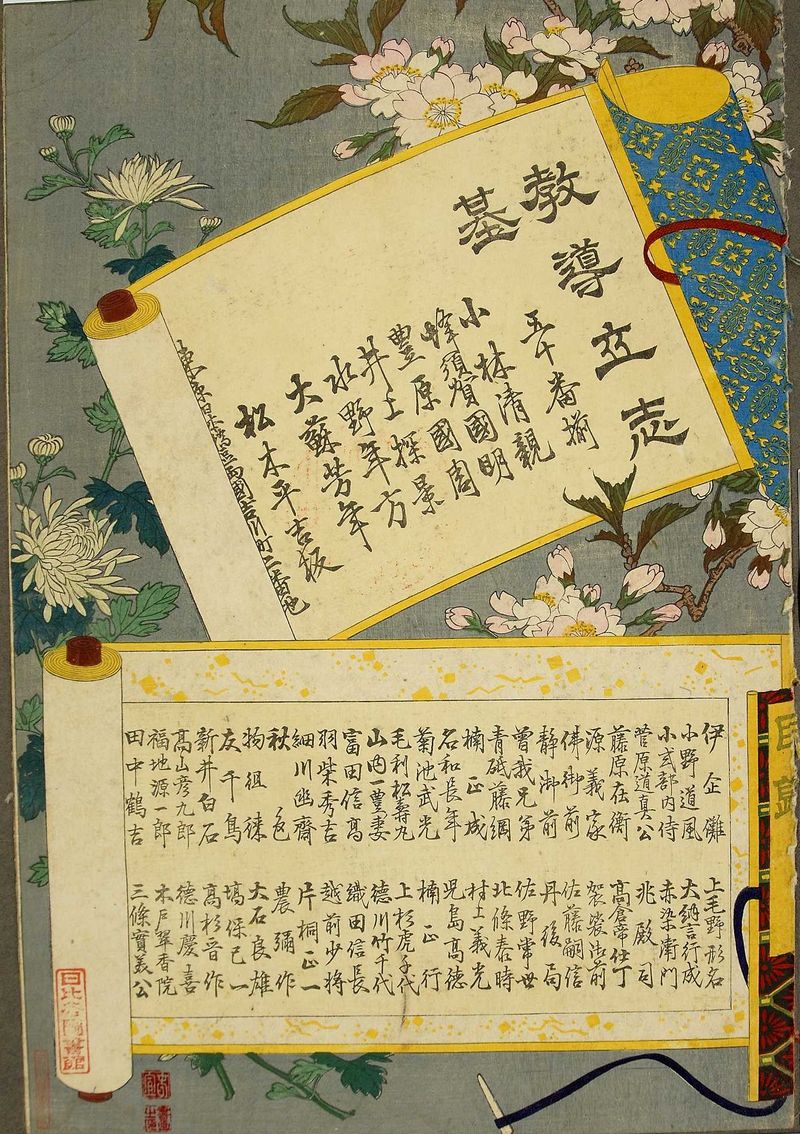 教導立志
基
五十番揃
小林清親
蜂須賀國明
豊原國周
井上探景
水野年方
大蘇芳年
松木平吉板
東京日本橋區兩國吉川町二番地
目録
伊企儺
小野道風
小式部内侍
菅原道真公
藤原在衡
源義家
佛御前
静御前
曽我兄弟
青砥藤綱
楠正成
名和長年
菊池武光
毛利松壽丸
山内一豊妻
富田信高
羽柴秀吉
細川幽齋
秋色
物徂徠
友千鳥
新井白石
高山彦九郎
福地源一郎
田中鶴吉
上毛野形名
大納言行成
赤染衛門
兆殿司
高倉帝仕丁
袈裟御前
佐藤嗣信
丹後局
佐野常世
北條泰時
村上義光
児島高徳
楠正行
上杉虎千代
徳川竹千代
織田信長
越前少将
片桐正一
農彌作
大石良雄
塙保己一
高杉晋作
徳川慶喜
木戸翠香院
三條實美公
日比谷圖書館